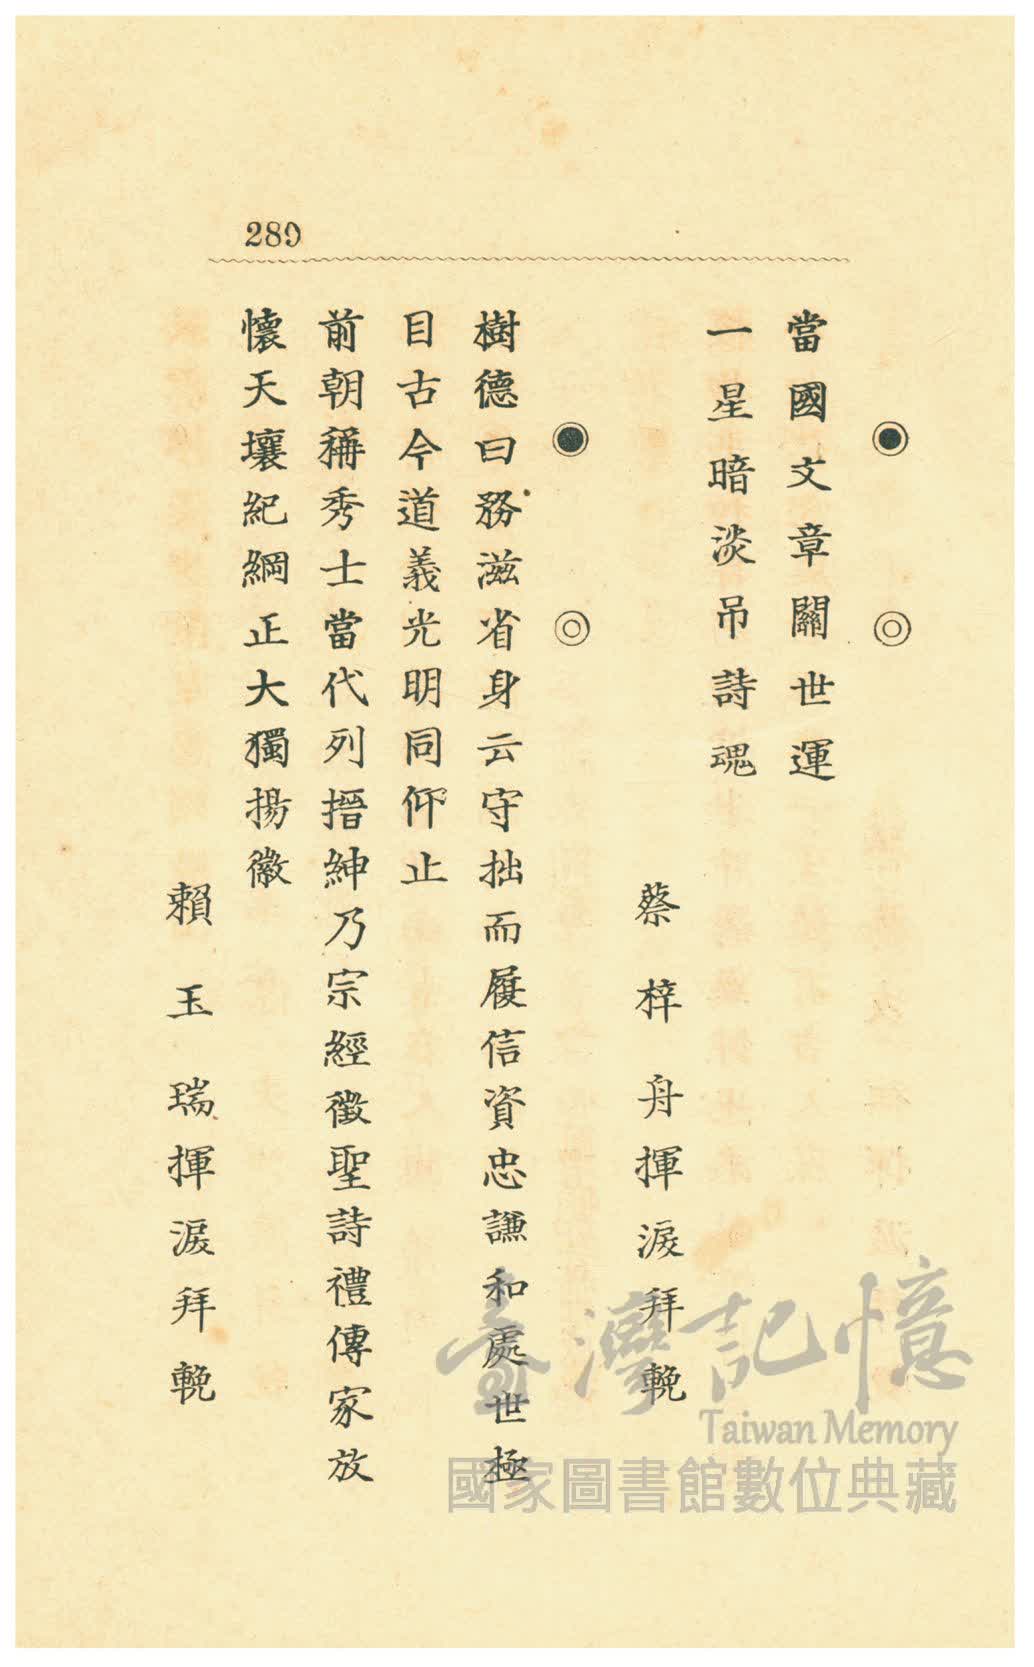 289
當國文章關世運
一星暗淡吊詩魂
蔡梓舟揮淚拜輓
樹德曰務滋省身云守拙而履信資忠謙和處世極
目古今道義光明同仰止
前朝稱秀士當代列搢紳乃宗經徵聖詩禮傳家放
懷天壤紀綱正大獨揚徽
賴玉瑞揮淚拜輓
臺灣記憶
Taiwan Memory
國家圖書館數位典藏